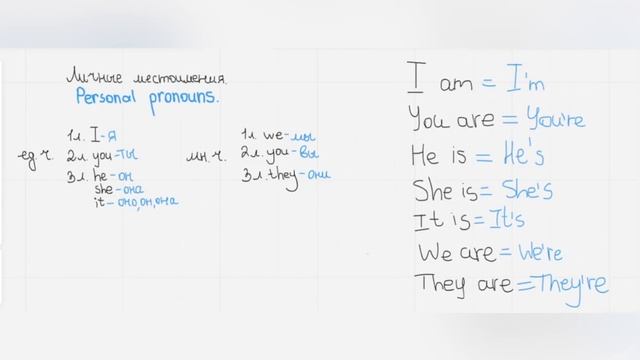 Личные местоимения.
Personal pronouns.
1л. I-я
ед.ч. 2л. you-ты
3л. he-он
she-она
it-оно, он, она
1л. we-мы
мн.ч. 2л. you-вы
3л. they-они
I am = I'm
You are = You're
He is = He's
She is = She's
It is = It's
We are = We're
They are = They're